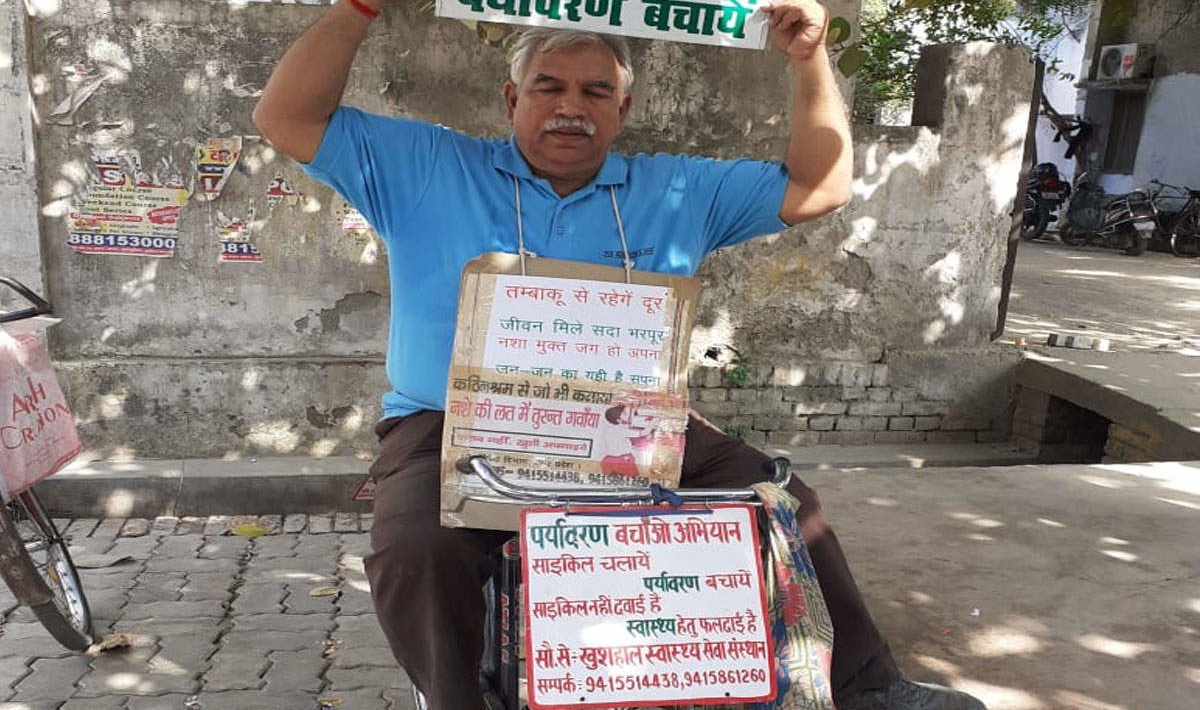 पर्यावरण बचायें
तम्बाकू से रहेगें दूर
जीवन मिले सदा भरपूर
नशा मुक्त जग हो अपना
जन-जन का यही है सपना
कठिनश्रम से जो भी कमाया
नशे की लत में तुरन्त गवाँया
9415514438, 9415861260
पर्यावरण बचाओ अभियान
साइकिल चलायें
पर्यावरण बचायें
साइकिल नहीं दवाई है
स्वास्थ्य हेतु फलदाई है
सौ.से- खुशहाल स्वास्थ्य सेवा संस्थान
सम्पर्क- 9415514438,9415861260
888153000